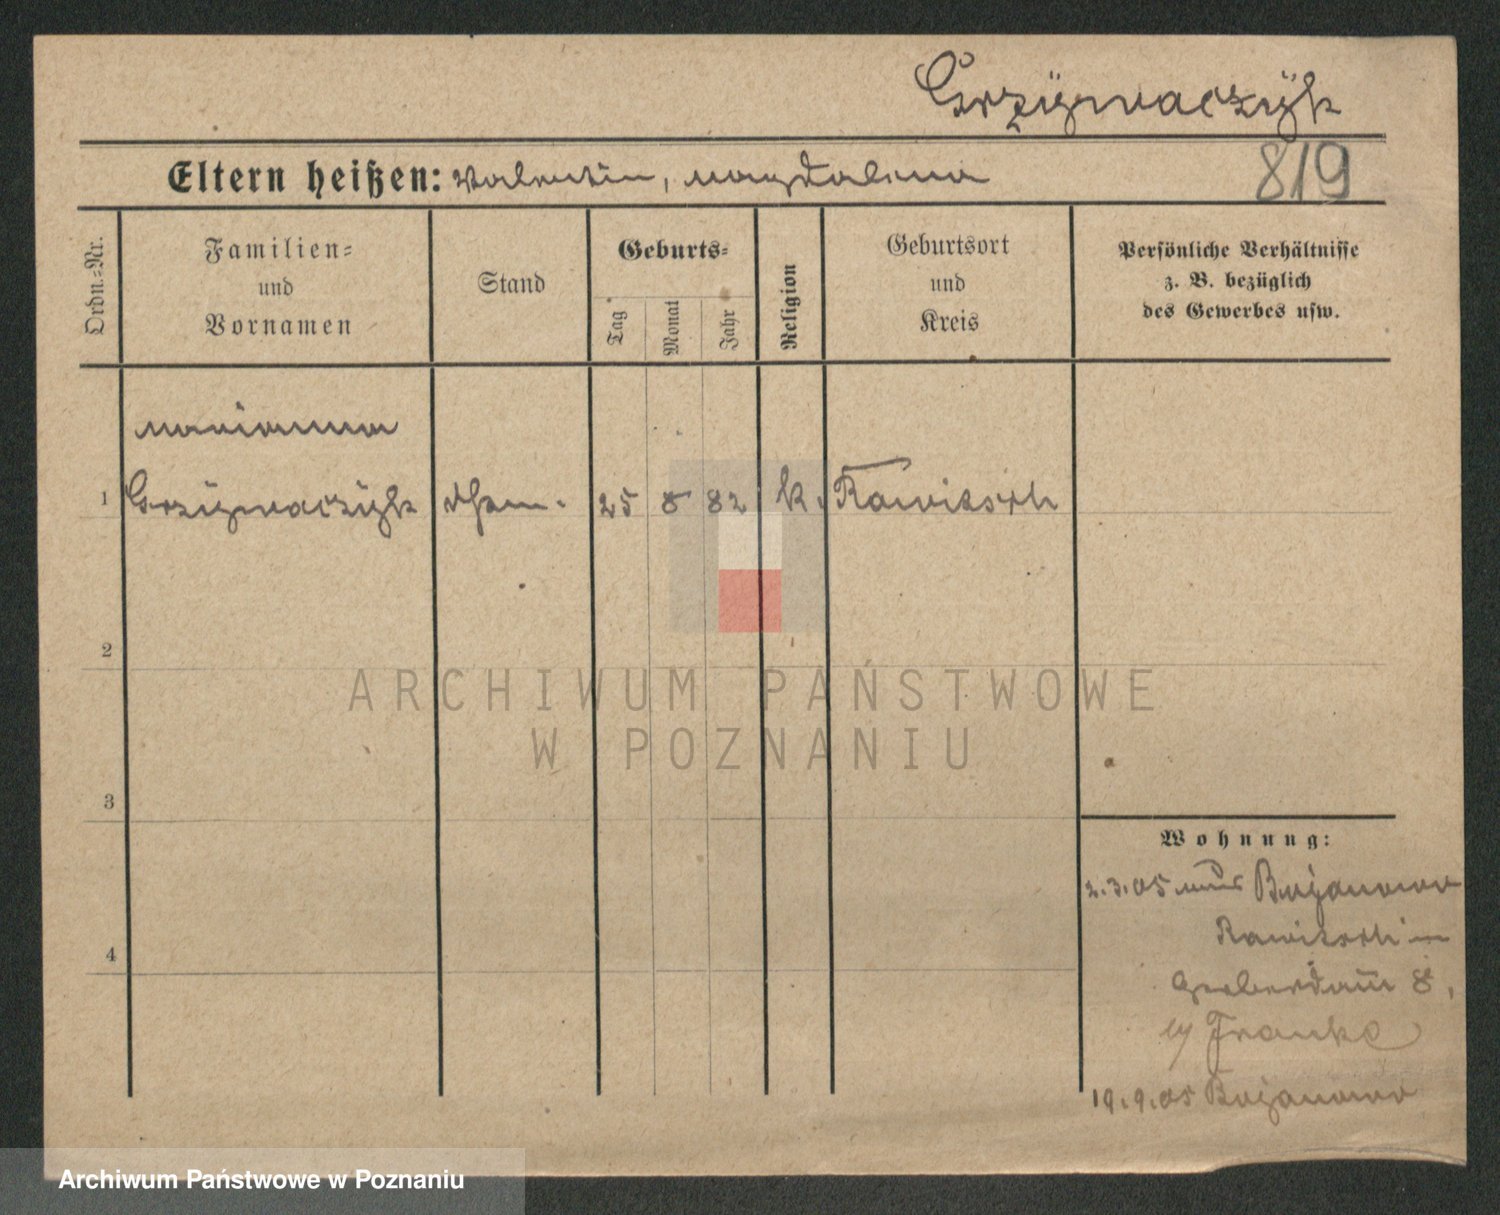 Grzÿwaczÿk
819
Eltern heißen: Valentin, Magdalena
Ordn.-Nr.
Familien-
und
Vornamen
Stand
Geburts-
Tag
Monat
Jahr
Religion
Geburtsort
und
Kreis
Persönliche Verhältnisse
z. B. bezüglich
des Gewerbes usw.
Marianna
1 Grzÿwaczÿk 25 8 82 k. Rawitsch
2
3
4
Wohnung:
2.3.05 aus Bojanowo
Rawitsch
Gerberdam 8,
by Franke
19.9.05 Bojanowo
ARCHIWUM PAŃSTWOWE
W POZNANIU
Archiwum Państwowe w Poznaniu